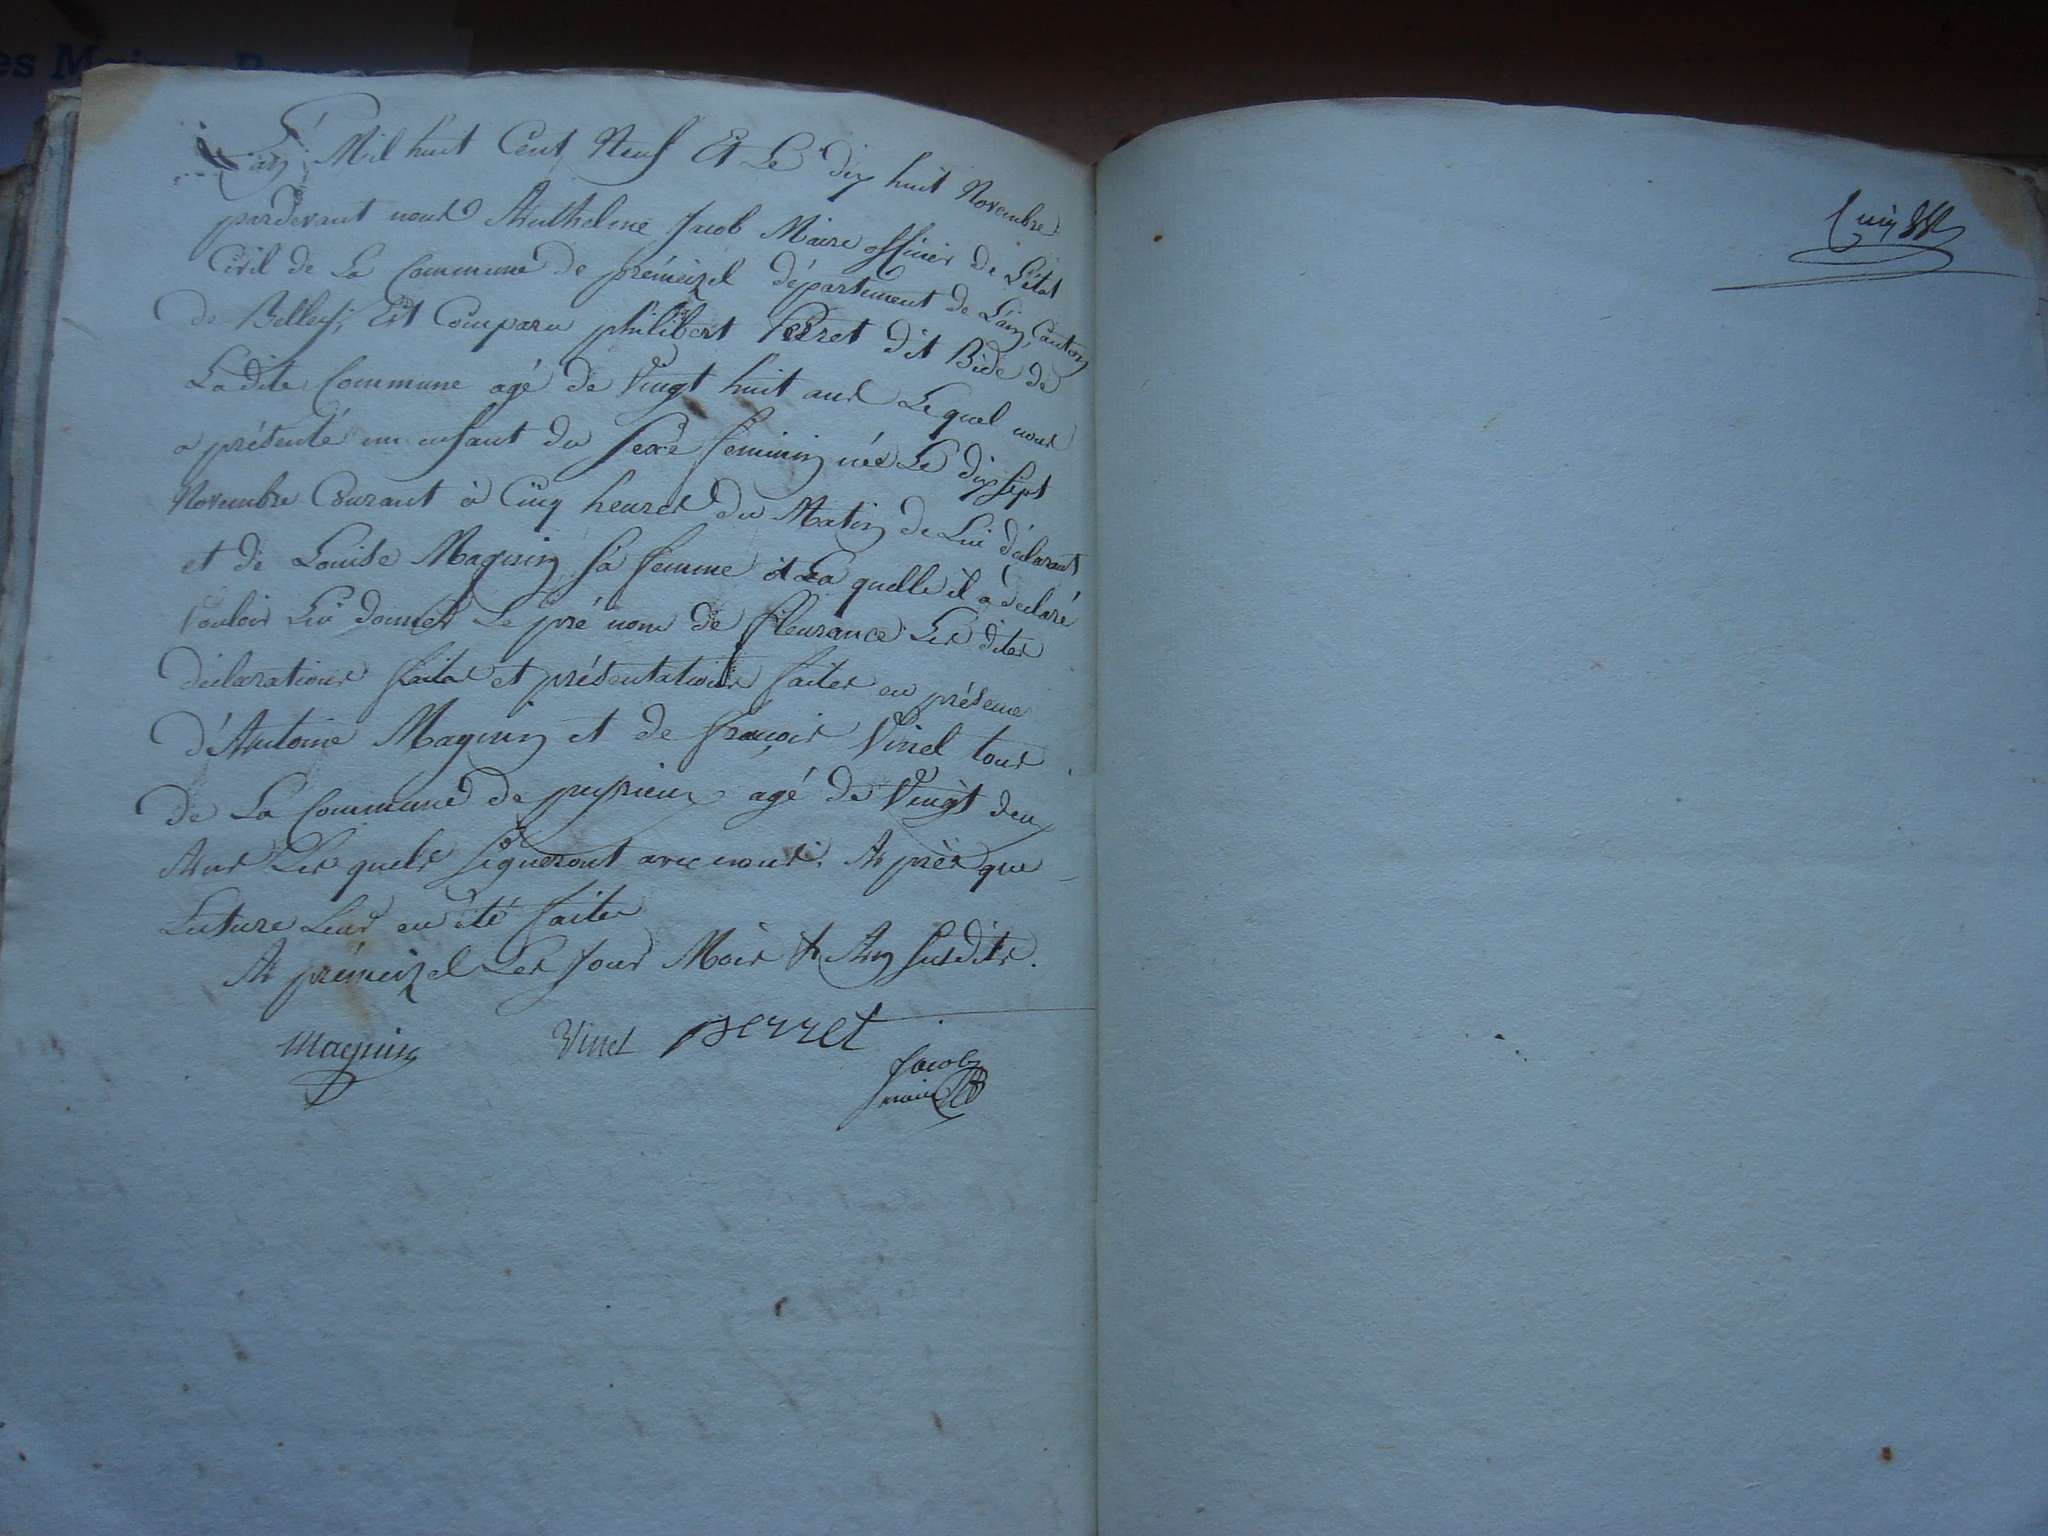 L'an Mil huit Cent Neuf Et Le dix huit Novembre
pardevant nous Anthelme Jacob Maire officier de L'état
Civil de La Commune de prémeizel département de L'ain, Canton
de Belley, Est Comparu philibert Perret dit Bide de
La dite Commune agé de Vingt huit ans Lequel nous
a présenté un enfant du Sexe feminin née Le dix Sept
Novembre Courant à Cinq heures du Matin de Lui déclarant
et de Louise Magnin Sa femme et La quelle il a déclaré
Vouloir Lui donner Le pré nom de fleurance Les dites
déclarations faites et présentations faites en présence
d'Antoine Magnin et de françois Vinel tous
de La Commune de peyrieux agé de Vingt deux
Ans Les quels Signeront avec nous. Après que
Lecture Leur en été faite
A prémeizel Les Jour Mois & An Susdits.
Magnin Vinel perret
Jacob
maire